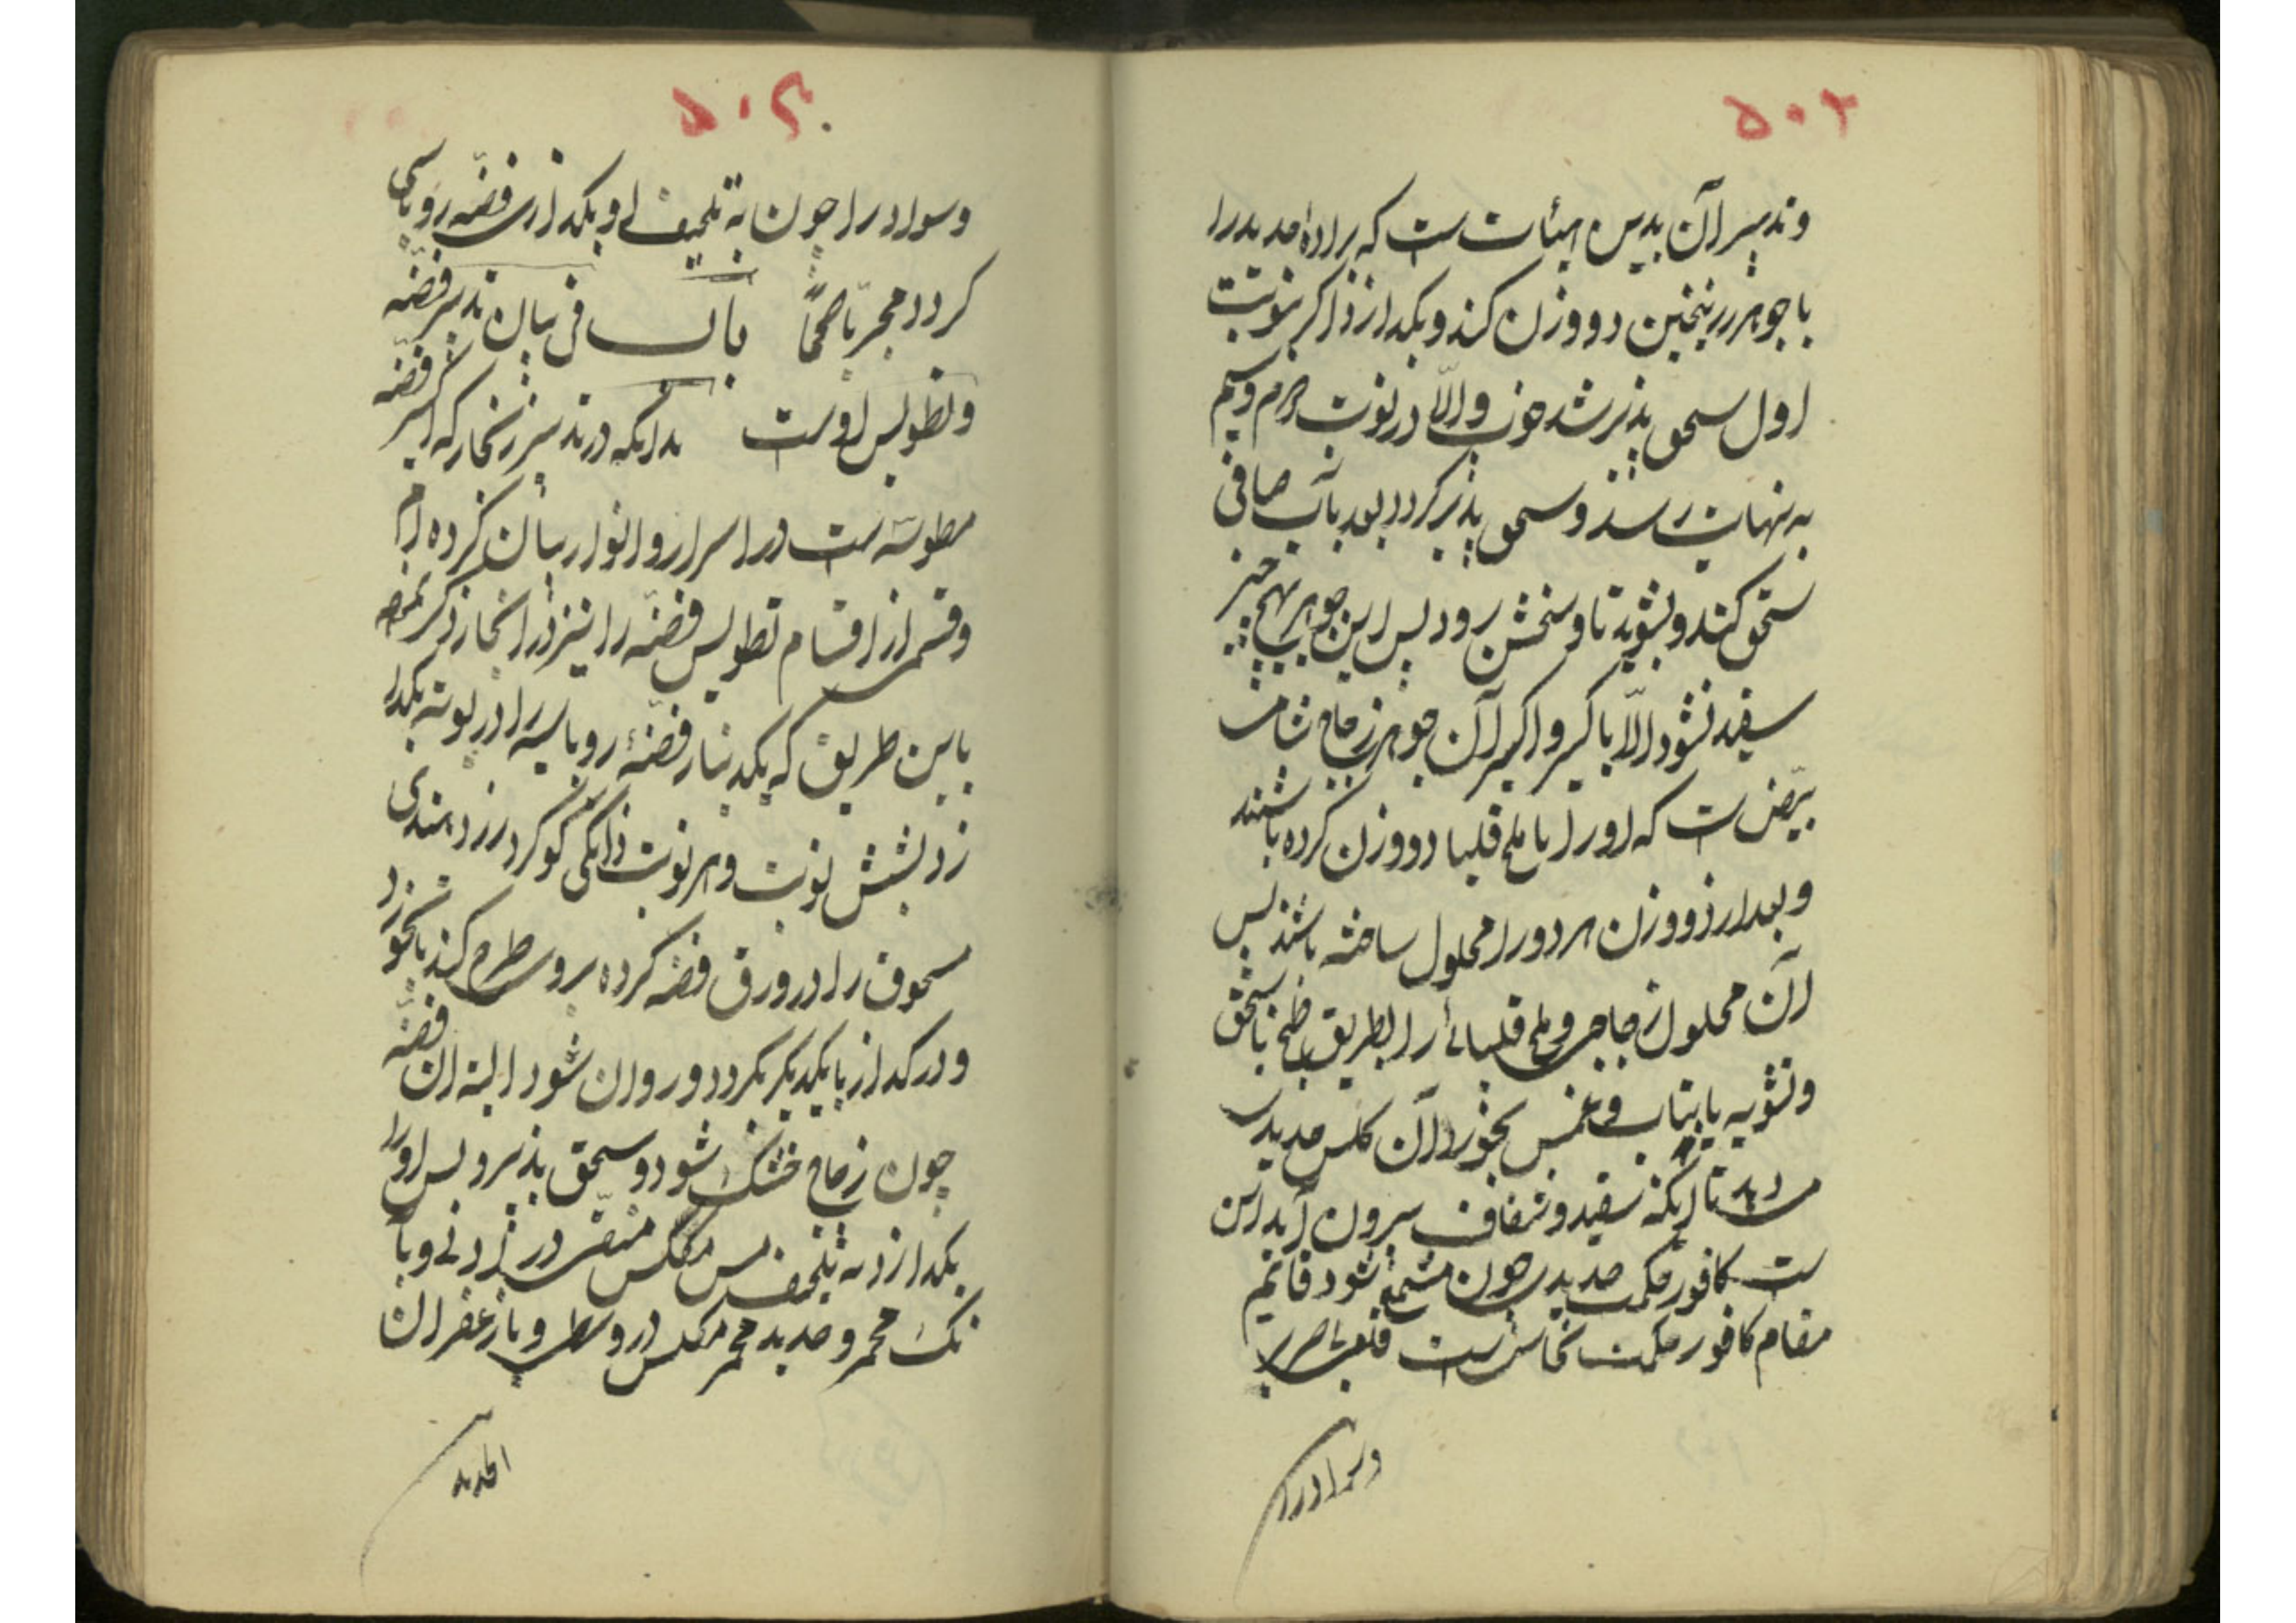 ۵۰۲
وتدبیر آن بدین هیأت ست که براده حدید را
با جوهر زرنیخین دو وزن کند و بکدازد اگر بنوبت
اول سحق پذیر شد خوب والّا در نوبت دوم وسیم
به نهایت رسد و سحق پذیر کردد بعد بآب صافی
سحق کند و بشوید تا وسخش رود پس این جوهر بهیچ چیز
سفید نشود الّا باکسیر و اکسیر آن جوهر زجاج شامت
بیّض ست که او را با ملح قلیا دو وزن کرده باشند
وبعد از دو وزن هر دو را محلول ساخته باشند پس
آن محلول زجاجی و ملح قلیائی را بطریق طبخ یا سحق
وتشویه یا بتاب و غمس بخورد آن کلس حدیدی
دهد تا آنکه سفید و شفاف بیرون آید این
ست کافور حکمت حدیدی چون مشمع شود قائم
مقام کافور حکمت نحاس ست قلعی را صریر
وسواد را
۵۰۴
وسواد را چون به تلحیف او بکدازی فضّه روباسی
کردد مجرّباً صحّاً باب فی بیان تدبیر فضّه
وتطویس اوست بدانکه در تدبیر زنجار که اکسیر فضّه
مطوسه ست در اسرار و انوار بیان کرده ام
وقسمی از اقسام تطویس فضّه را نیز در آنجا ذکر نموده
باین طریق که یکدینار فضّهٔ روباسیه را در بوته بکدا
زد بشش نوبت و هر نوبت دانکی کوکرد زرد هندی
مسحوق را در ورق فضّه کرده بروی طرح کند تا بخورد
ودر کداز با یکدیکر بکردد و روان شود البته آن فضّه
چون زجاج خشک شود و سحق پذیر و پس او را
بکدازد به تلحیف مس مکلس منقّی در زدنی و با
نمک محمر و حدید محمر مکلس در وسطی و با زعفران
الحدید